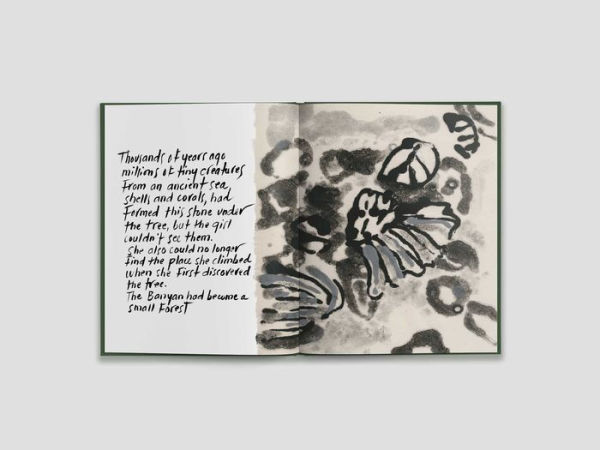 Thousands of years ago
millions of tiny creatures
From an ancient sea,
shells and corals, had
Formed this stone under
the tree, but the girl
couldn't see them.
She also could no longer
find the place she climbed
when she First discovered
the tree.
The Banyan had become a
small Forest